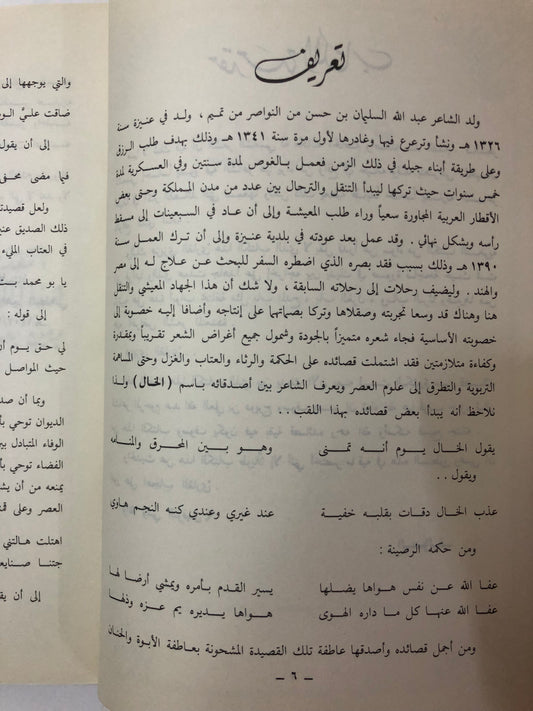 تعريف
ولد الشاعر عبد الله السليمان بن حسن من النواصر من تميم ، ولد في عنيزة سنة
١٣٢٦ هـ ونشأ وترعرع فيها وغادرها لأول مرة سنة ١٣٤١ هـ وذلك بهدف طلب الرزق
وعلى طريقة أبناء جيله في ذلك الزمن فعمل بالغوص لمدة سنتين وفي العسكرية لمدة
خمس سنوات حيث تركها ليبدأ التنقل والترحال بين عدد من مدن المملكة وحتى بعض
الأقطار العربية المجاورة سعياً وراء طلب المعيشة إلى أن عاد في السبعينات إلى مسقط
رأسه وبشكل نهائي . وقد عمل بعد عودته في بلدية عنيزة وإلى أن ترك العمل سنة
١٣٩٠ هـ وذلك بسبب فقد بصره الذي اضطره السفر للبحث عن علاج له إلى مصر
والهند . وليضيف رحلات إلى رحلاته السابقة ، ولا شك أن هذا الجهاد المعيشي والتنقل
هنا وهناك قد وسعا تجربته وصقلاها وتركا بصماتهما على إنتاجه وأضافا إليه خصوبة إلى
خصوبته الأساسية فجاء شعره متميزاً بالجودة وشمول جميع أغراض الشعر تقريباً وبمقدرة
وكفاءة متلازمتين فقد اشتملت قصائده على الحكمة والرثاء والعتاب والغزل وحتى المساهمة
التربوية والتطرق إلى علوم العصر ويعرف الشاعر بين أصدقائه باسم ( الخال ) ولذا
نلاحظ أنه يبدأ بعض قصائده بهذا اللقب . .
يقول الخال يوم أنه تمنى وهو بين المحرق والمنامه
ويقول . .
عذب الخال دقات بقلبه خفية عند غيري وعندي كنه النجم هاوي
ومن حكمه الرصينة :
عفا الله عن نفس هواها يضلها يسير القدم بأمره ويمشي أرضا لها
عفا الله عنها كل ما داره الهوى هواها يديره يم عزه وذلها
ومن أجمل قصائده وأصدقها عاطفة تلك القصيدة المشحونة بعاطفة الأبوة والحنان
– ٦ –
والتي يوجهها إلى
ضاقت عليَّ
إلى أن يقول
فيما مضى
ولعل قصيدته
ذلك الصديق
في العتاب المليء
يا بو محمد
إلى قوله :
لي حق يوم أن
حيث المواصل
وبما أن
الديوان توحي
الوفاء المتبادل
الفضاء توحي
يمنعه من أن
العصر وعلى
اهتلت هالتني
جتنا
إلى أن